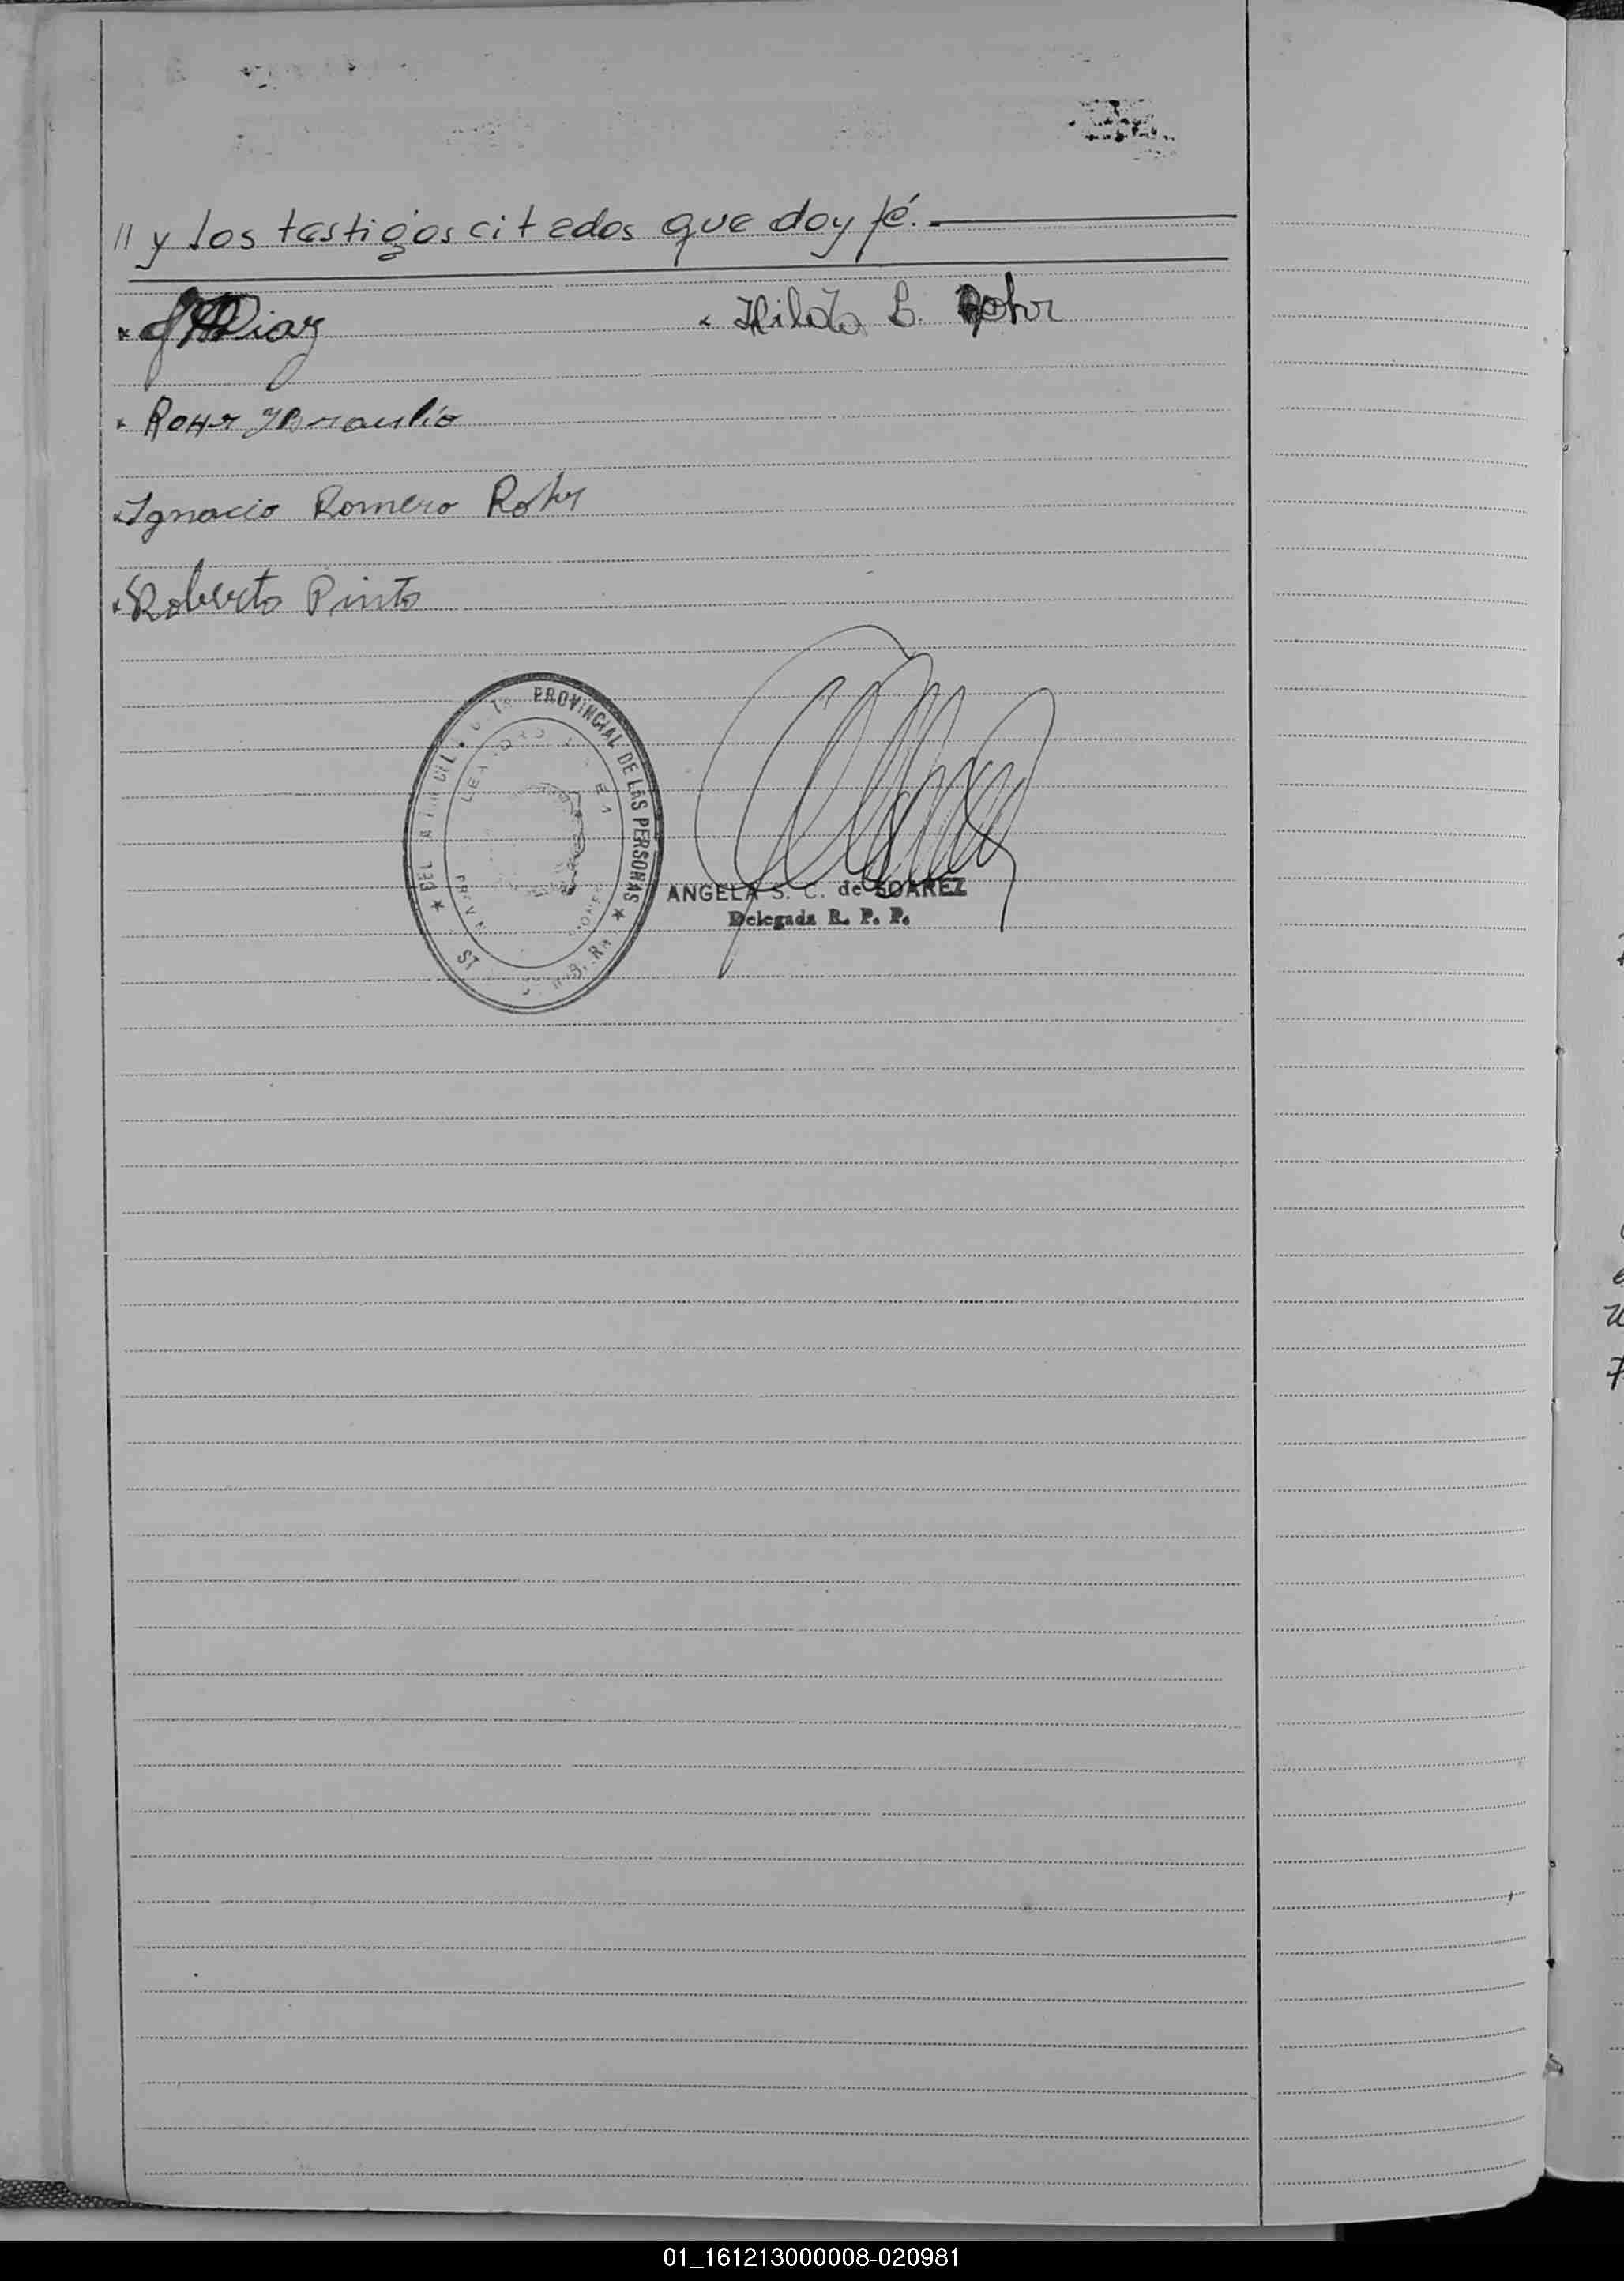 // y los testigos citados que doy fé.-
Diaz
Hilda B. Rohr
Rohr Braulio
Ignacio Romero Rohr
Roberto Pinto
PROVINCIAL DE LAS PERSONAS
ANGELA S. C. de SOAREZ
Delegada R. P. P.
01_161213000008-020981